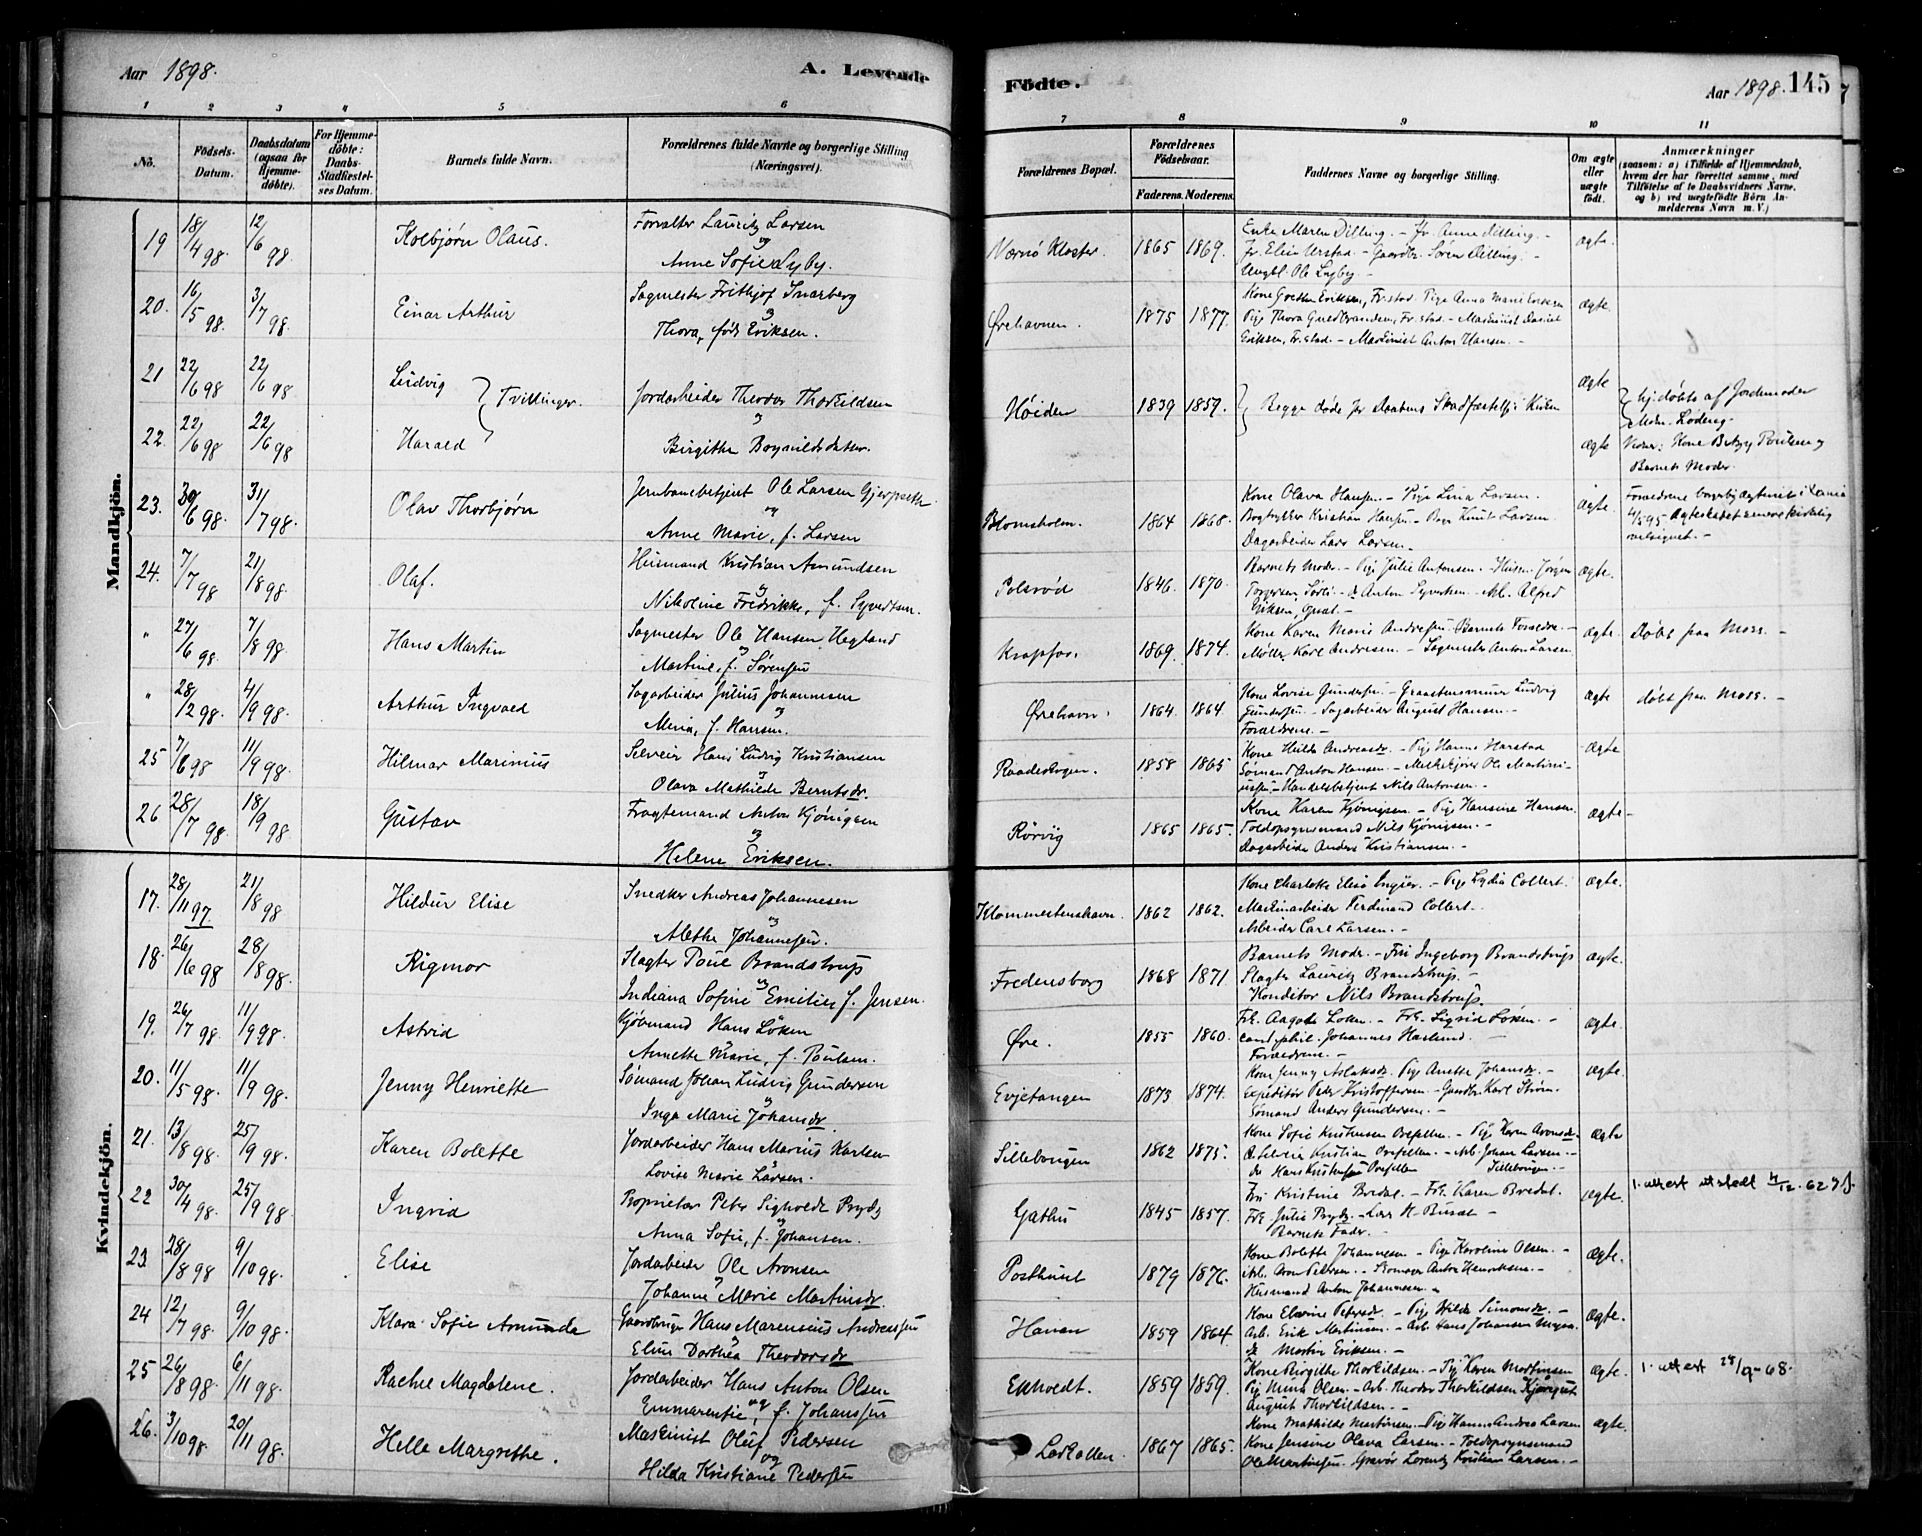 Aar 1898.
A. Levende
Födte.
Aar 1898. 145
1 2 3 4 5 6 7 8 9 10 11
No.
Födsels-Datum.
Daabsdatum (ogsaa for Hjemmedöbte).
For Hjemmedöbte: Daabs-Stadfæstelses Datum.
Barnets fulde Navn.
Forældrenes fulde Navne og borgerlige Stilling (Næringsvei).
Forældrenes Bopæl.
Forældrenes Födselsaar.
Faderens. Moderens.
Faddernes Navne og borgerlige Stilling.
Om ægte eller uægte födt.
Anmærkninger
(saasom: a) i Tilfælde af Hjemmedaab, hvem der har forrettet samme, med Tilföielse af to Daabsvidners Navne, og b) ved uægtefödte Börn Anmelderens Navn m. V.)
Mandkjön.
19 18/4 98. 12/6 98 Kolbjørn Olaus. Forvalter Lauritz Larsen og Anne Sofie Lyby. Værnø Kloster. 1865 1869. Enke Maren Dilling. - Fr. Anne Dilling. - Fr. Elise Urstad. - Gaardbr. Søren Dilling. - Ungkl. Ole Lyby. - ægte.
20. 16/5 98. 3/7 98. Einar Arthur Sagmester Frithjof Snarberg og Thora, født Eriksen. Ørehavnen. 1875 1877. Kone Eriksen, Fr.stad. Pige Anna Marie Eriksen Pige Thora Guldbrandsen, Fr.stad. - Maskinist Daniel Eriksen, Fr.stad. - Maskinist Anton Hansen. - ægte.
21 22/6 98 22/6 98 Ludvig } Tvillinger. Jordarbeider Theodor Thorkildsen og Høiden 1839 1859. Begge døde før Daabens Stadfæstelse i Kirken ægte hj.døbte af Jordemoder Mdm. Løderig.
22. 22/6 98 22/6 98 Harald Birgithe Bognildsdatter. ægte Vidner: Kone Betzy Poulsen og Barnets Moder.
23. 30/6 98. 31/7 98. Olav Thorbjørn Jernbanebetjent Ole Larsen og Anne Marie, f. Larsen Blomsholm. 1864 1868. Kone Olava Hansen. - Pige Lina Larsen. Bogtrykker Kristian Hansen. - Knut Larsen. Dagarbeider Lars Larsen. - ægte. Forældrene borgerlig ægteviet i 4/5 95. Ægteskabet senere kirkelig velsignet. -
24. 7/7 98 21/8 98. Olaf. Husmand Kristian Amundsen og Nikoline Fredrikke, f. Syvertsen. Polsrød 1846. 1870. Barnets Moder. - Pige Julie Antonsen. - Jørgen Torgersen, - Anton Syvertsen. - Arb. Alfred Eriksen, - ægte.
" 27/6 98. 7/8 98 Hans Martin Sagmester Ole Hansen Hegland og Martine, f. Sørensen Krapfos. 1869. 1874. Kone Karen Marie Andresen - Barnets Forældre. - Møller Karl Andresen. - Sagmester Anton Larsen ægte. Døbt paa Moss. -
" 28/2 98. 4/9 98. Arthur Ingvald Sagarbeider Julius Johannesen og Mina, f. Hansen. Ørehavn. 1864. 1864 Kone Lovise Gundersen. - Graastensmurer Ludvig Gundersen. - Sagarbeider August Hansen. - Forældrene. - ægte døbt paa Moss. -
25 7/6 98 11/9 98. Hilmar Marinius Selveier Hans Ludvig Kristiansen og Olava Mathilde Berntsdr. Raadeskogen. 1858 1865 Kone Hulda Andreasdr. - Pige Hanna Harstad Sømand Anton Hansen. - Melkekjører Ole Martiniussen. - Handelsbetjent Nils Antonsen. - ægte
26 28/7 98. 18/9 98. Gustav Fragtemand Anton Kjønigsen og Helene Eriksen. Rørvig 1865 1865. Kone Karen Kjønigsen. - Pige Hansine Hansen. Toldopsynsmand Nils Kjønigsen. - Dagarbeider Anders Kristiansen. - ægte -
Kvindekjön.
17. 28/11 97. 21/8 98 Hildur Elise Snedker Andreas Johannesen og Alethe Johannesen. Klommestenshavn. 1862 1862. Kone Charlotte Elise Ingier. - Pige Lydia Collert. Maskinarbeider Ferdinand Collert. - Arbeider Carl Larsen. - ægte.
18. 26/6 98 28/8 98. Rigmor Slagter Poul Brandstrup og Indiana Sofine Emilie, f. Jensen. Fredensborg 1868 1871. Barnets Moder - Fru Ingeborg Brandstrup Slagter Lauritz Brandstrup. - Konditor Nils Brandstrup. ægte.
19. 26/7 98 11/9 98. Astrid Kjøbmand Hans Løken og Annette Marie, f. Poulsen. Øre. 1855 1860. Frk. Aagot Løken. - Frk. Sigrid Løken. - cand. phil. Johannes Haslund. - Forældrene. - ægte.
20. 11/5 98. 11/9 98. Jenny Henriette Sømand Johan Ludvig Gundersen og Inga Marie Johansdr. Evjetangen 1873 1874. Kone Jenny Aslaksdr. Pige Anette Johansdr. - Expeditør Peter Kristoffersen - Gaardbr. Karl Strøm. Sømand Anders Gundersen. - ægte.
21. 13/8 98. 25/9 98. Karen Bolette Jordarbeider Hans Marius Karlsen Lovise Marie Larsen. Sillebougen 1862 1875. Kone Sofie Kristiansen - Pige Karen Aronsdr. Kristian - Arb. Johan Larsen. - Sillebougen. - ægte
22 30/4 98. 25/9 98. Ingrid Proprietær Peter Sigvolde Prydz og Anna Sofie, f. Johansen. Gathu 1845 1857. Fru Kristine Bredal. - Frk. Karen Bredal. Frk. Julie Prydz. - Barnets Fader. - ægte. 1. attest utstedt 4/12. 62
23. 28/8 98 9/10 98. Elise Jordarbeider Ole Aronsen og Johanne Marie Martinsdr. Posthuset 1879 1876. Kone Bolette Johannesen - Pige Karoline Olsen. - Arb. Aron Pedersen. - Skomager Anton Henriksen. - Husmand Anton Johannesen. - ægte.
24 12/7 98. 9/10 98. Klara Sofie Amunda Gaardbruger Hans Marensius Andreassen og Elise Dorthea Theodorsdr. Haven 1859 1864 Kone Elevine Petersdr. - Pige Hilda Simonsdr. - Arb. Erik Martinsen. - Arb. Hans Johansen Martin Eriksen. - ægte.
25 26/8 98. 6/11 98. Rachel Magdalene. Jordarbeider Hans Anton Olsen og Emmarentie, f. Johanssen Ekholdt. 1859 1859. Kone Birgithe Thorkildsen. - Pige Karen Martinsen Pige Mina Olsen. - Arb. Theodor Thorkildsen August Thorkildsen. - ægte. 1. attest 28/9-68.
26. 3/10 98. 20/11 98. Helle Margrethe. Maskinist Oluf Pedersen og Hilda Kristiane Pedersen Larkollen. 1867 1865. Kone Mathilde Martinsen. - Pige Hanna Andrea Larsen Kone Jensine Olava Larsen. - Toldopsynsmand Ole Martinsen. Gravør Lorentz Kristian Larsen. - ægte.